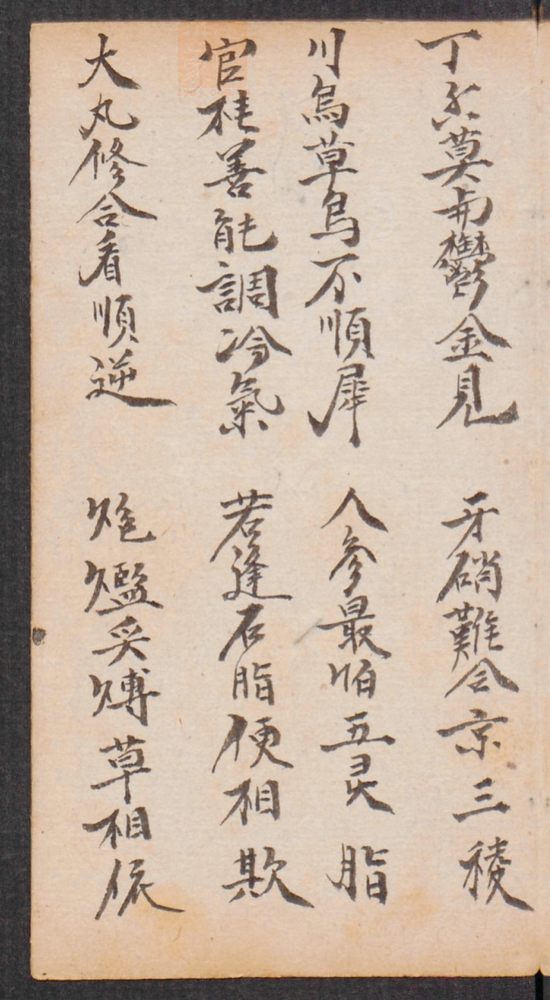 丁莫与鬱金見 牙硝難合京三稜
川烏草烏不順犀 人參最怕五灵脂
官桂善能調冷氣 若逢石脂便相欺
大丸修合看順逆 炮爁炙煿草相依